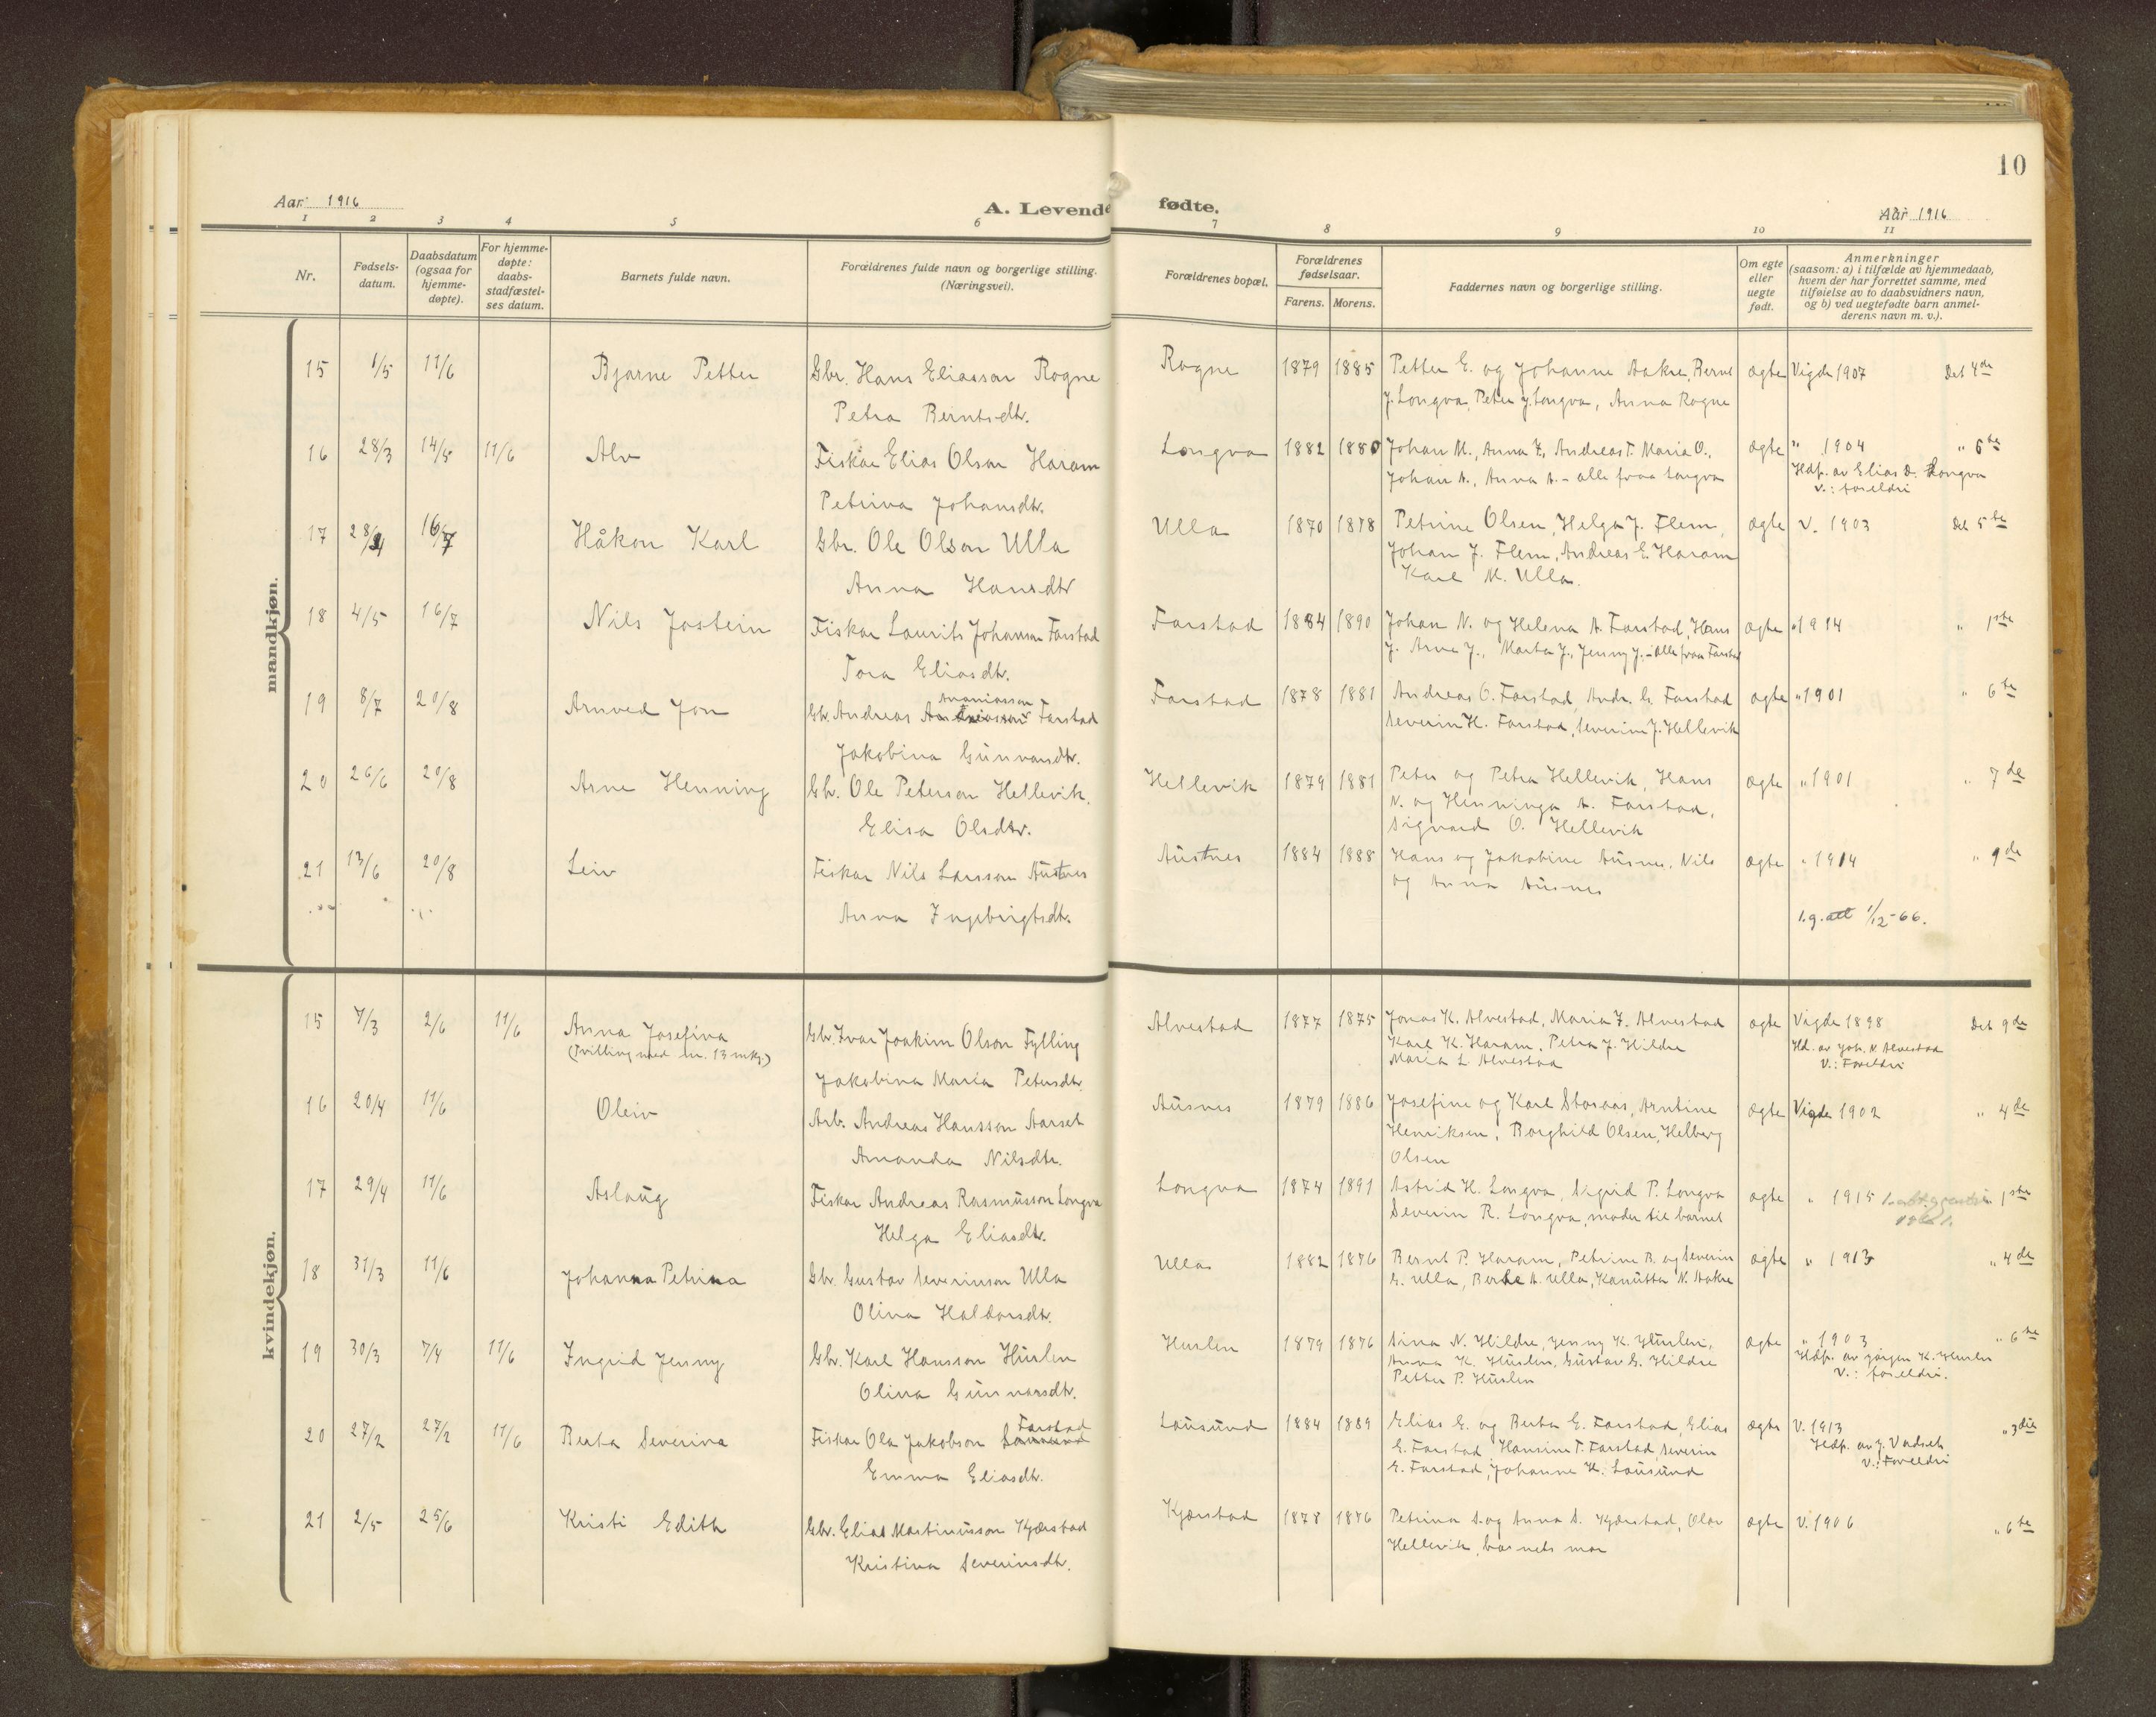 10
Aar: 1916
A. Levende fødte.
Aar 1916
1 2 3 4 5 6 7 8 9 10 11
Nr.
Fødsels-
datum.
Daabsdatum
(ogsaa for
hjemme-
døpte).
For hjemme-
døpte:
daabs-
stadfæstel-
ses datum.
Barnets fulde navn.
Forældrenes fulde navn og borgerlige stilling.
(Næringsvei).
Forældrenes bopæl.
Forældrenes
fødselsaar.
Farens. Morens.
Faddernes navn og borgerlige stilling.
Om egte
eller
uegte
født.
Anmerkninger
(saasom: a) i tilfælde av hjemmedaab,
hvem der har forrettet samme, med
tilføielse av to daabsvidners navn,
og b) ved uegtefødte barn anmel-
derens navn m. v.).
mandkjøn.
15 1/5 11/6 Bjarne Petter Gbr. Hans Eliasson Rogne Rogne 1879 1885 Petter E. og Johanne Aakre, Bernt ægte Vigde 1907 Det 4de
Petra Berntsdtr. J. Longva, Peter J. Longva, Anna Rogne
16 28/3 14/5 11/6 Alv Fiskar Elias Olson Haram Longva 1882 1880 Johan M., Anna Z., Andreas T. Maria O., ægte " 1904 " 6te
Petrina Johansdtr. Johan A., Anna A. - alle fraa Longva Hdp. av Elias D. Longva
V.: foreldri
17 28/4 16/7 Håkon Karl Gbr. Ole Olson Ulla Ulla 1870 1878 Petrine Olsen, Helga J. Flem, ægte V. 1903 Det 5te
Anna Hansdtr Johan J. Flem, Andreas E. Haram
Karl M. Ulla.
18 4/5 16/7 Nils Jostein Fiskar Laurits Johanson Farstad Farstad 1884 1890 Johan N. og Helena A. Farstad, Hans ægte " 1914 " 1ste
Tora Eliasdtr. J. Arne J., Marta J., Jenny J. - alle fraa Farstad
19 8/7 20/8 Arnved Jon Gbr. Andreas Ananiasson Farstad Farstad 1878 1881 Andreas O. Farstad, Andr. G. Farstad ægte " 1901 " 6te
Jakobina Gunnarsdtr. Severin H. Farstad, Severine J. Hellevik
20 26/6 20/8 Arne Henning Gbr. Ole Peterson Hellevik. Hellevik 1879 1881 Peter og Petra Hellevik, Hans ægte " 1901 " 7de
Elisa Olsdtr. N. og Henninga A. Farstad,
Sigvard O. Hellevik
21 13/6 20/8 Leiv Fiskar Nils Larsson Austnes Austnes 1884 1888 Hans og Jakobine Ausnes, Nils ægte " 1914 " 9de
Anna Ingebrigtsdtr. og Anna Ausnes
1.g. att 1/12-66.
kvindekjøn.
15 7/3 2/6 11/6 Anna Josefina Gbr. Ivar Joakim Olson Fylling Alvestad 1877 1875 Jonas K. Alvestad, Maria J. Alvestad ægte Vigde 1898 Det 9de
(Tvilling med nr. 13 mkj.) Jakobina Maria Petersdtr. Karl K. Haram, Petra J. Hildre Hd. av Joh. N. Alvestad
Maria L. Alvestad V.: Foreldri
16 20/4 11/6 Oleiv Arb. Andreas Hansson Aarset Ausnes 1879 1886 Josefine og Karl Storaas, Arntine ægte Vigde 1902 " 4de
Amanda Nilsdtr. Henriksen, Borghild Olsen, Helberg
Olsen
17 29/4 11/6 Aslaug Fiskar Andreas Rasmusson Longva Longva 1874 1891 Astrid H. Longva, Sigrid P. Longva ægte " 1915 " 1ste
Helga Eliasdtr. Severin R. Longva, moder til barnet
18 31/3 11/6 Johanna Petrina Gbr. Gustav Severinson Ulla Ulla 1882 1876 Bernt P. Haram, Petrine B. og Severin ægte " 1913 " 4de
Olina Haldorsdtr. G. Ulla, Berte A. Ulla, Kanutta N. Aakre
19 30/3 7/4 11/6 Ingrid Jenny Gbr. Karl Hansson Hurlen Hurlen 1879 1876 Sina N. Hildre, Jenny K. Hurlen, ægte " 1903 " 6te
Olina Gunnarsdtr. Anna K. Hurlen, Gustav G. Hildre Hdp. av Jørgen K. Hurlen
Petter P. Hurlen V.: foreldri.
20 27/2 27/2 11/6 Berta Severina Fiskar Ola Jakobson Farstad Lausund 1884 1889 Elias E. og Berta E. Farstad, Elias ægte V. 1913 " 3die
Emma Eliasdtr. E. Farstad, Hansine T. Farstad, Severin Hdp. av J. Vadset.
E. Farstad, Johanne H. Lausund V.: Foreldri
21 2/5 25/6 Kristi Edith Gbr. Elias Martinusson Kjærstad Kjærstad 1878 1876 Petrina S. og Anna S. Kjærstad, Olav ægte V. 1906 " 6te
Kristina Severinsdtr. Hellevik, barnets mor